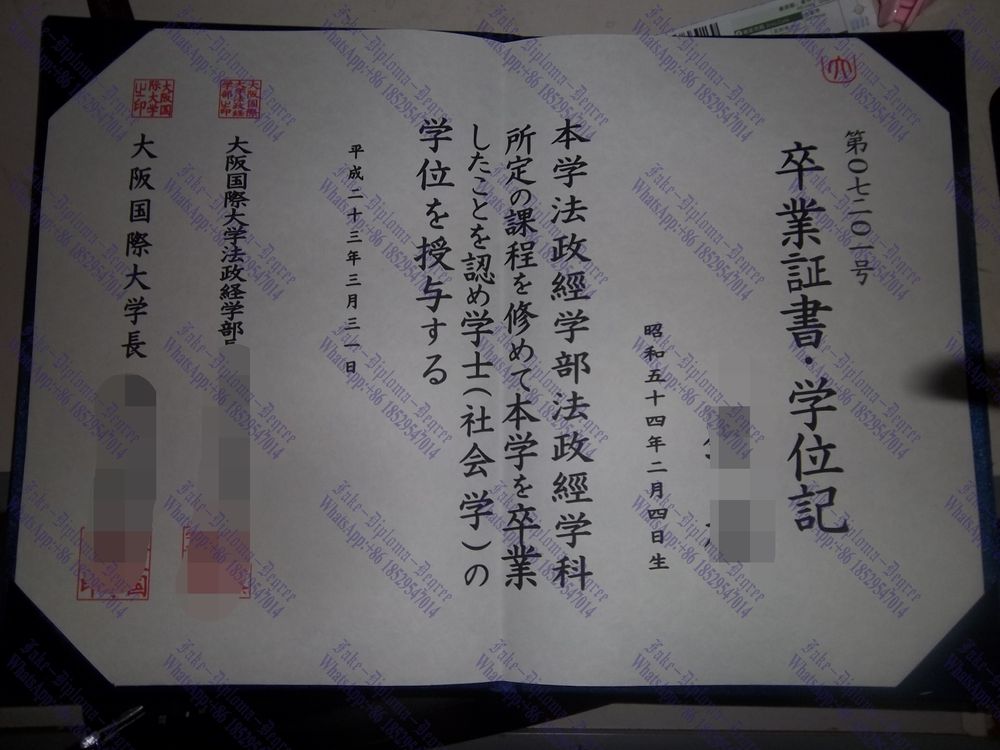 第〇七二〇一号
卒業証書・学位記
昭和五十四年二月四日生
本学法政經学部法政經学科
所定の課程を修めて本学を卒業
したことを認め学士(社会学)の
学位を授与する
平成二十三年三月三一日
大阪国際大学法政経学部
大阪国際大学長
大阪国際大学之印
Fake-Diploma-Degree
WhatsApp:+86 18529547014